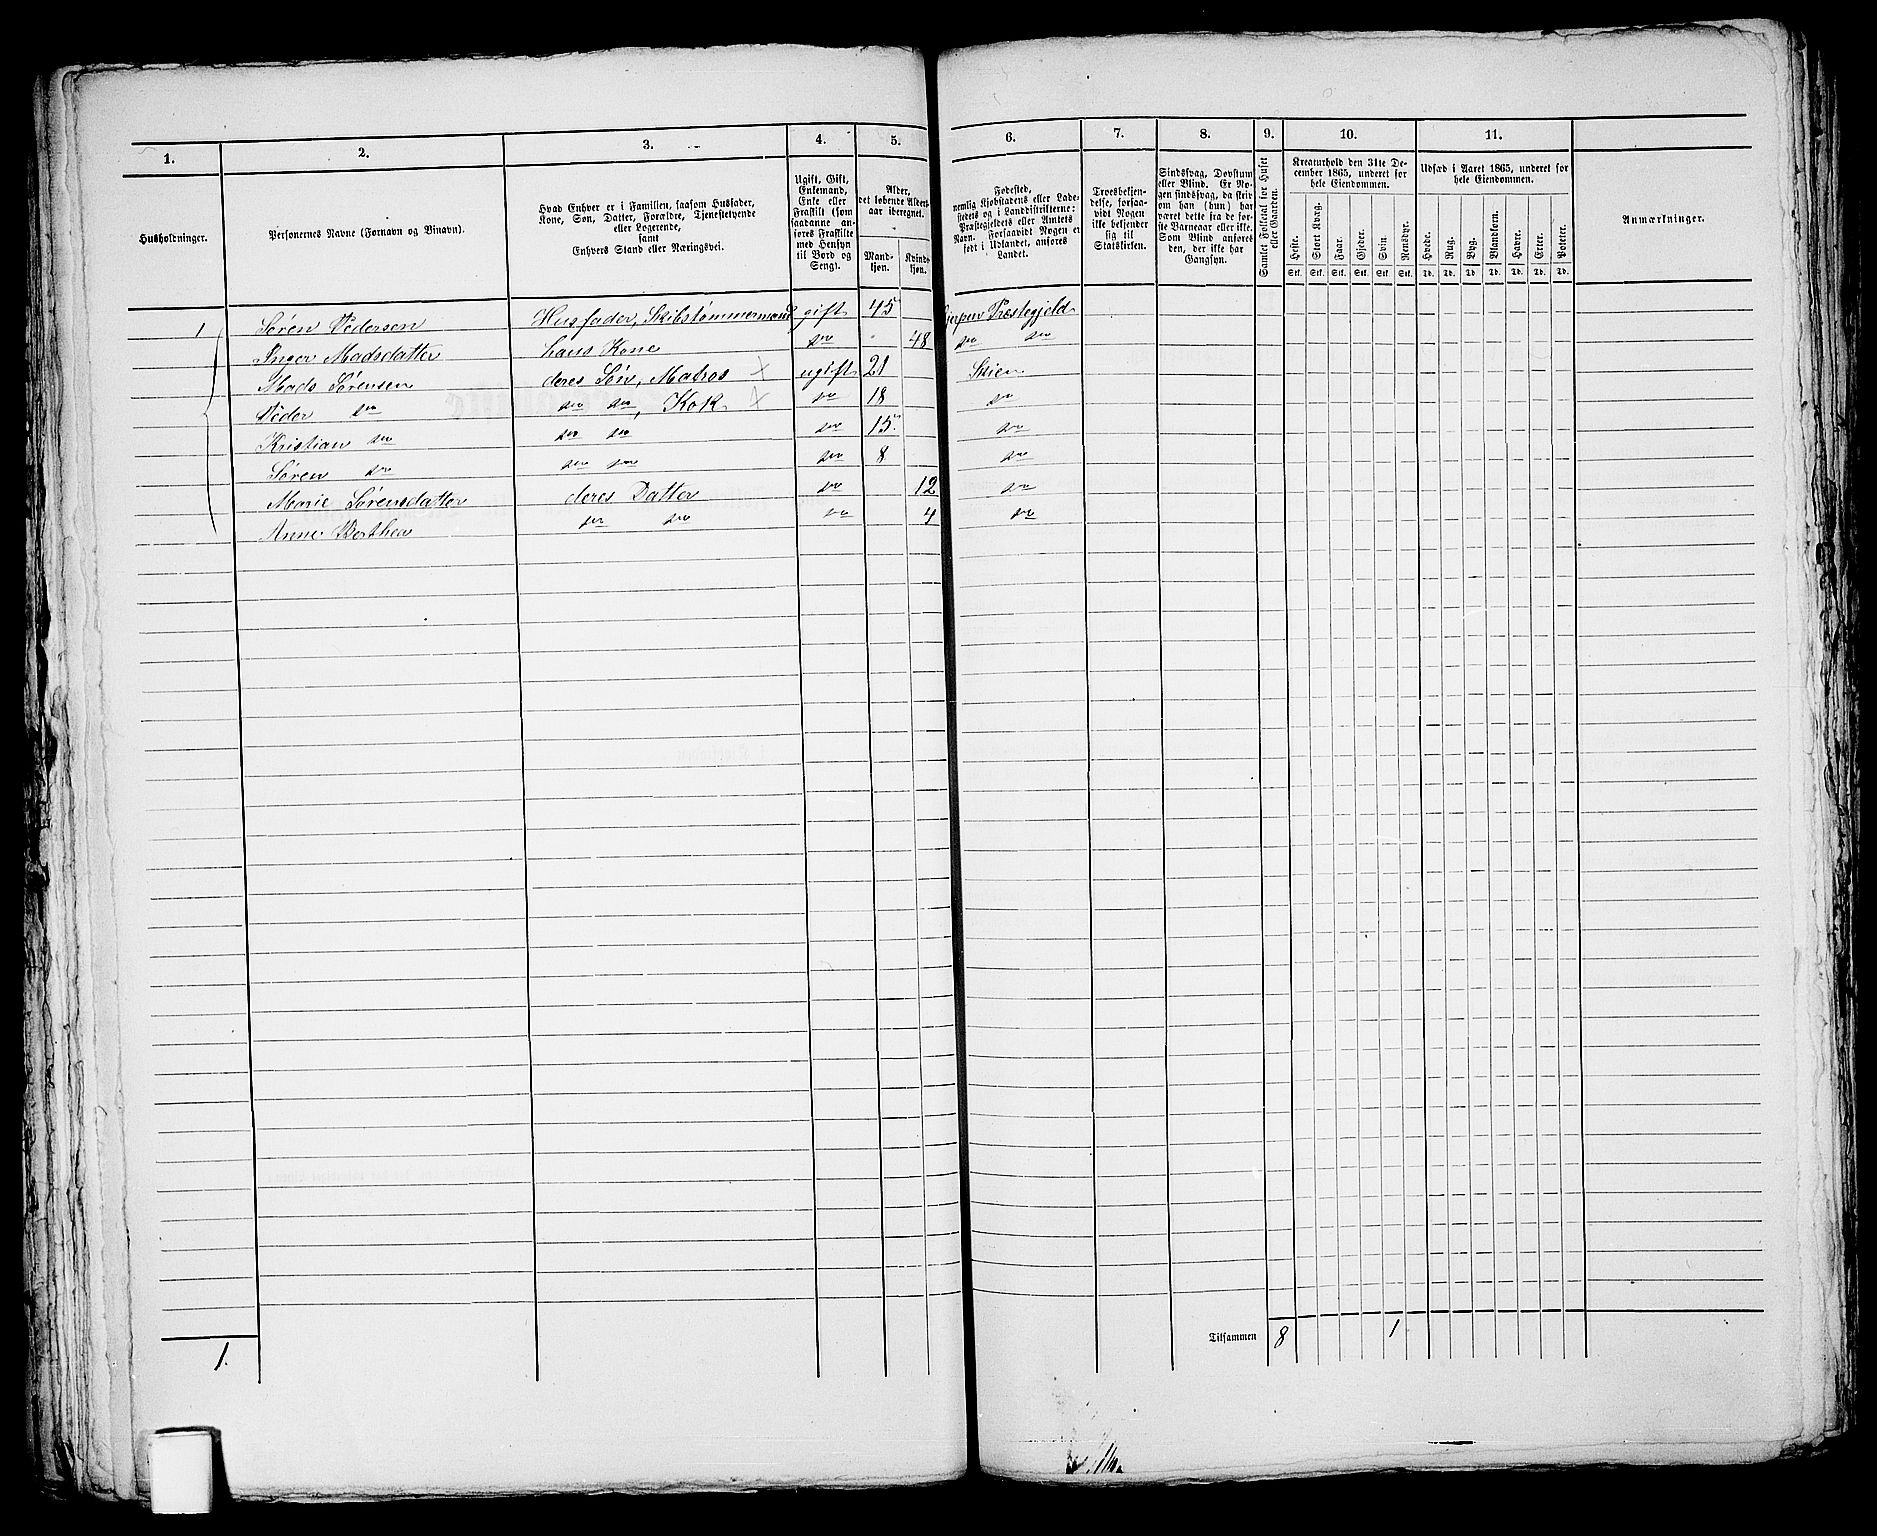 1. 2. 3. 4. 5. 6. 7. 8. 9. 10. 11.
Husholdninger.
Personernes Navne (Fornavn og Binavn).
Hvad Enhver er i Familien, saasom Husfader,
Kone, Søn, Datter, Forældre, Tjenestetyende
eller Logerende,
samt
Enhvers Stand eller Næringsvei.
Ugift, Gift,
Enkemand,
Enke eller
Fraskilt (som
saadanne an-
føres Fraskilte
med Hensyn
til Bord og
Seng).
Alder,
det løbende Alders-
aar iberegnet.
Mand-
kjøn.
Kvind-
kjøn.
Fødested,
nemlig Kjøbstadens eller Lade-
stedets og i Landdistrikterne:
Præstegjeldets eller Amtets
Navn. Forsaavidt Nogen er
født i Udlandet, anføres
Landet.
Troesbekjen-
delse, forsaa-
vidt Nogen
ikke bekjender
sig til
Statskirken.
Sindssvag, Døvstum
eller Blind. Er No-
gen sindssvag, da skriv
om han (hun) har
været dette fra de før-
ste Barneaar eller ikke.
Som Blind anføres
den, der ikke har
Gangsyn.
Samlet Folketal for Huset
eller Gaarden.
Kreaturhold den 31te De-
cember 1865, underet for
hele Eiendommen.
Heste. Stort Kvæg. Faar. Gjeder. Svin Rensdyr.
Stk. Stk. Stk. Stk. Stk. Stk.
Udsæd i Aaret 1865, underet for
hele Eiendommen.
Hvede. Rug. Byg. Blandkorn. Havre. Erter. Poteter.
Td. Td. Td. Td. Td. Td. Td.
Anmærkninger.
1 Søren Pedersen Husfader, Skibstømmermand gift 45 Gjerpen Præstegjeld
Inger Madsdatter hans Kone do 48 do do
Mads Sørensen deres Søn, Matros × ugift 21 Skien
Peder do do do, Kok × do 18 do
Kristian do do do do 15 do
Søren do do do do 8 do
Marie Sørensdatter deres Datter do 12 do
Anne Berthea do do do 4 do
Tilsammen 8 1
1.